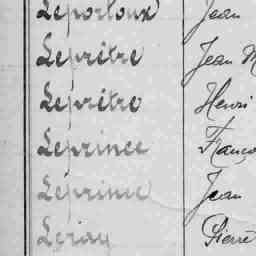 Leportoux Jean
Leprêtre Jean M
Leprêtre Henri
Leprince Franço
Leprince Jean
Leray Pierre